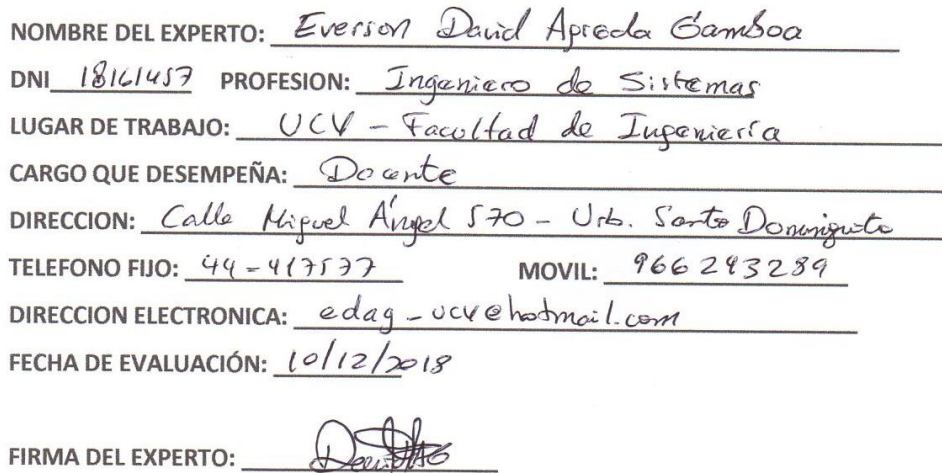 NOMBRE DEL EXPERTO: Everson David Agreda Gamboa
DNI 18161457 PROFESION: Ingeniero de Sistemas
LUGAR DE TRABAJO: UCV - Facultad de Ingeniería
CARGO QUE DESEMPEÑA: Docente
DIRECCION: Calle Miguel Ángel 570 - Urb. Santo Dominguito
TELEFONO FIJO: 44-417577 MOVIL: 966293289
DIRECCION ELECTRONICA: edag_ucv@hotmail.com
FECHA DE EVALUACIÓN: 10/12/2018
FIRMA DEL EXPERTO: